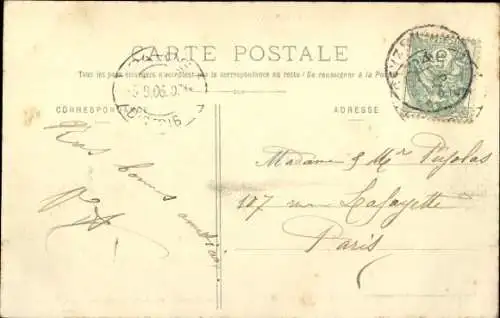 CARTE POSTALE
Tous les pays étrangers n'acceptent pas la correspondance au recto (Se renseigner à la Poste)
CORRESPONDANCE
ADRESSE
5-9.06
bonnes
amitiés
Madame & Mr Pujolas
107 rue Lafayette
Paris